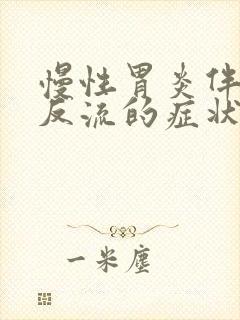 慢性胃炎伴
反流的症状
一米尘